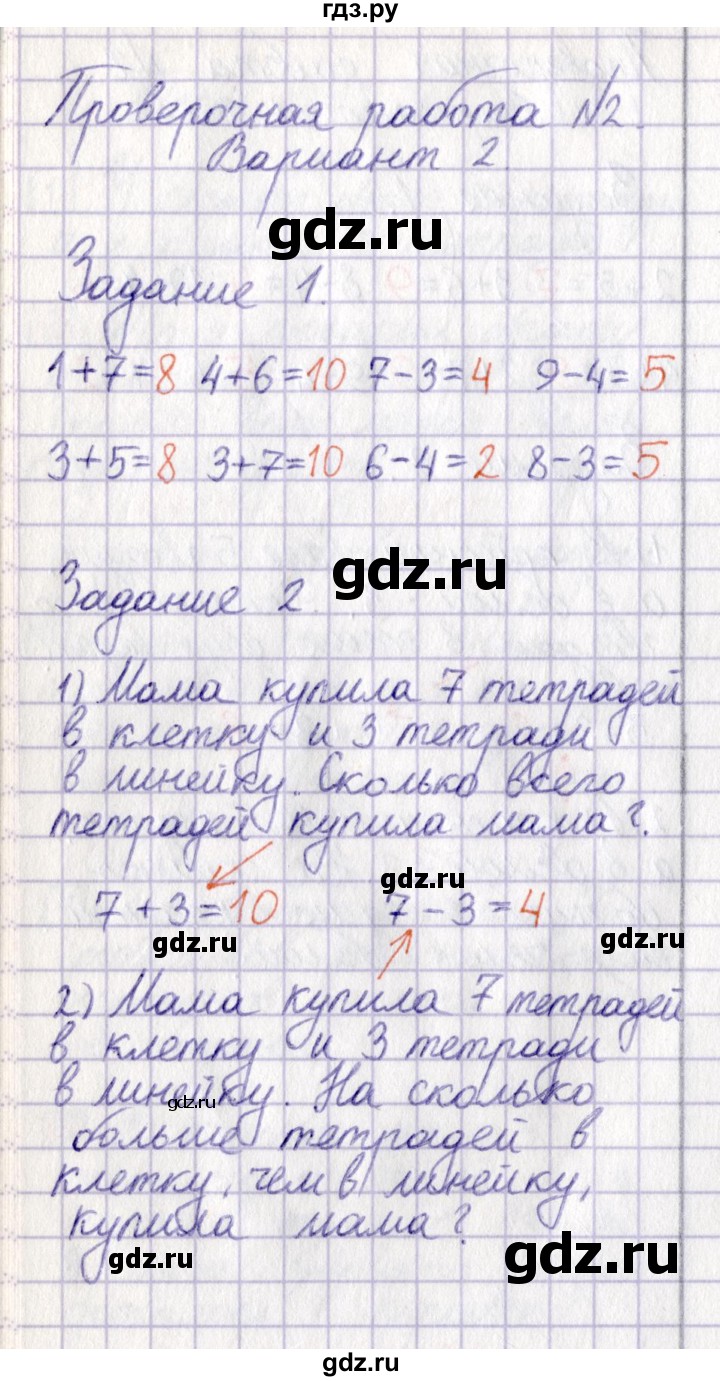 гдз.ру
Проверочная работа №2.
Вариант 2.
gdz.ru
Задание 1.
1+7=8 4+6=10 7-3=4 9-4=5
3+5=8 3+7=10 6-4=2 8-3=5
gdz.ru
Задание 2.
1) Мама купила 7 тетрадей
в клетку и 3 тетради
в линейку. Сколько всего
тетрадей купила мама?.
gdz.ru
7+3=10 7-3=4
gdz.ru gdz.ru
2) Мама купила 7 тетрадей
в клетку и 3 тетради
в линейку. На сколько
gdz.ru
больше тетрадей в
клетку, чем в линейку,
купила мама?
gdz.ru gdz.ru
gdz.ru